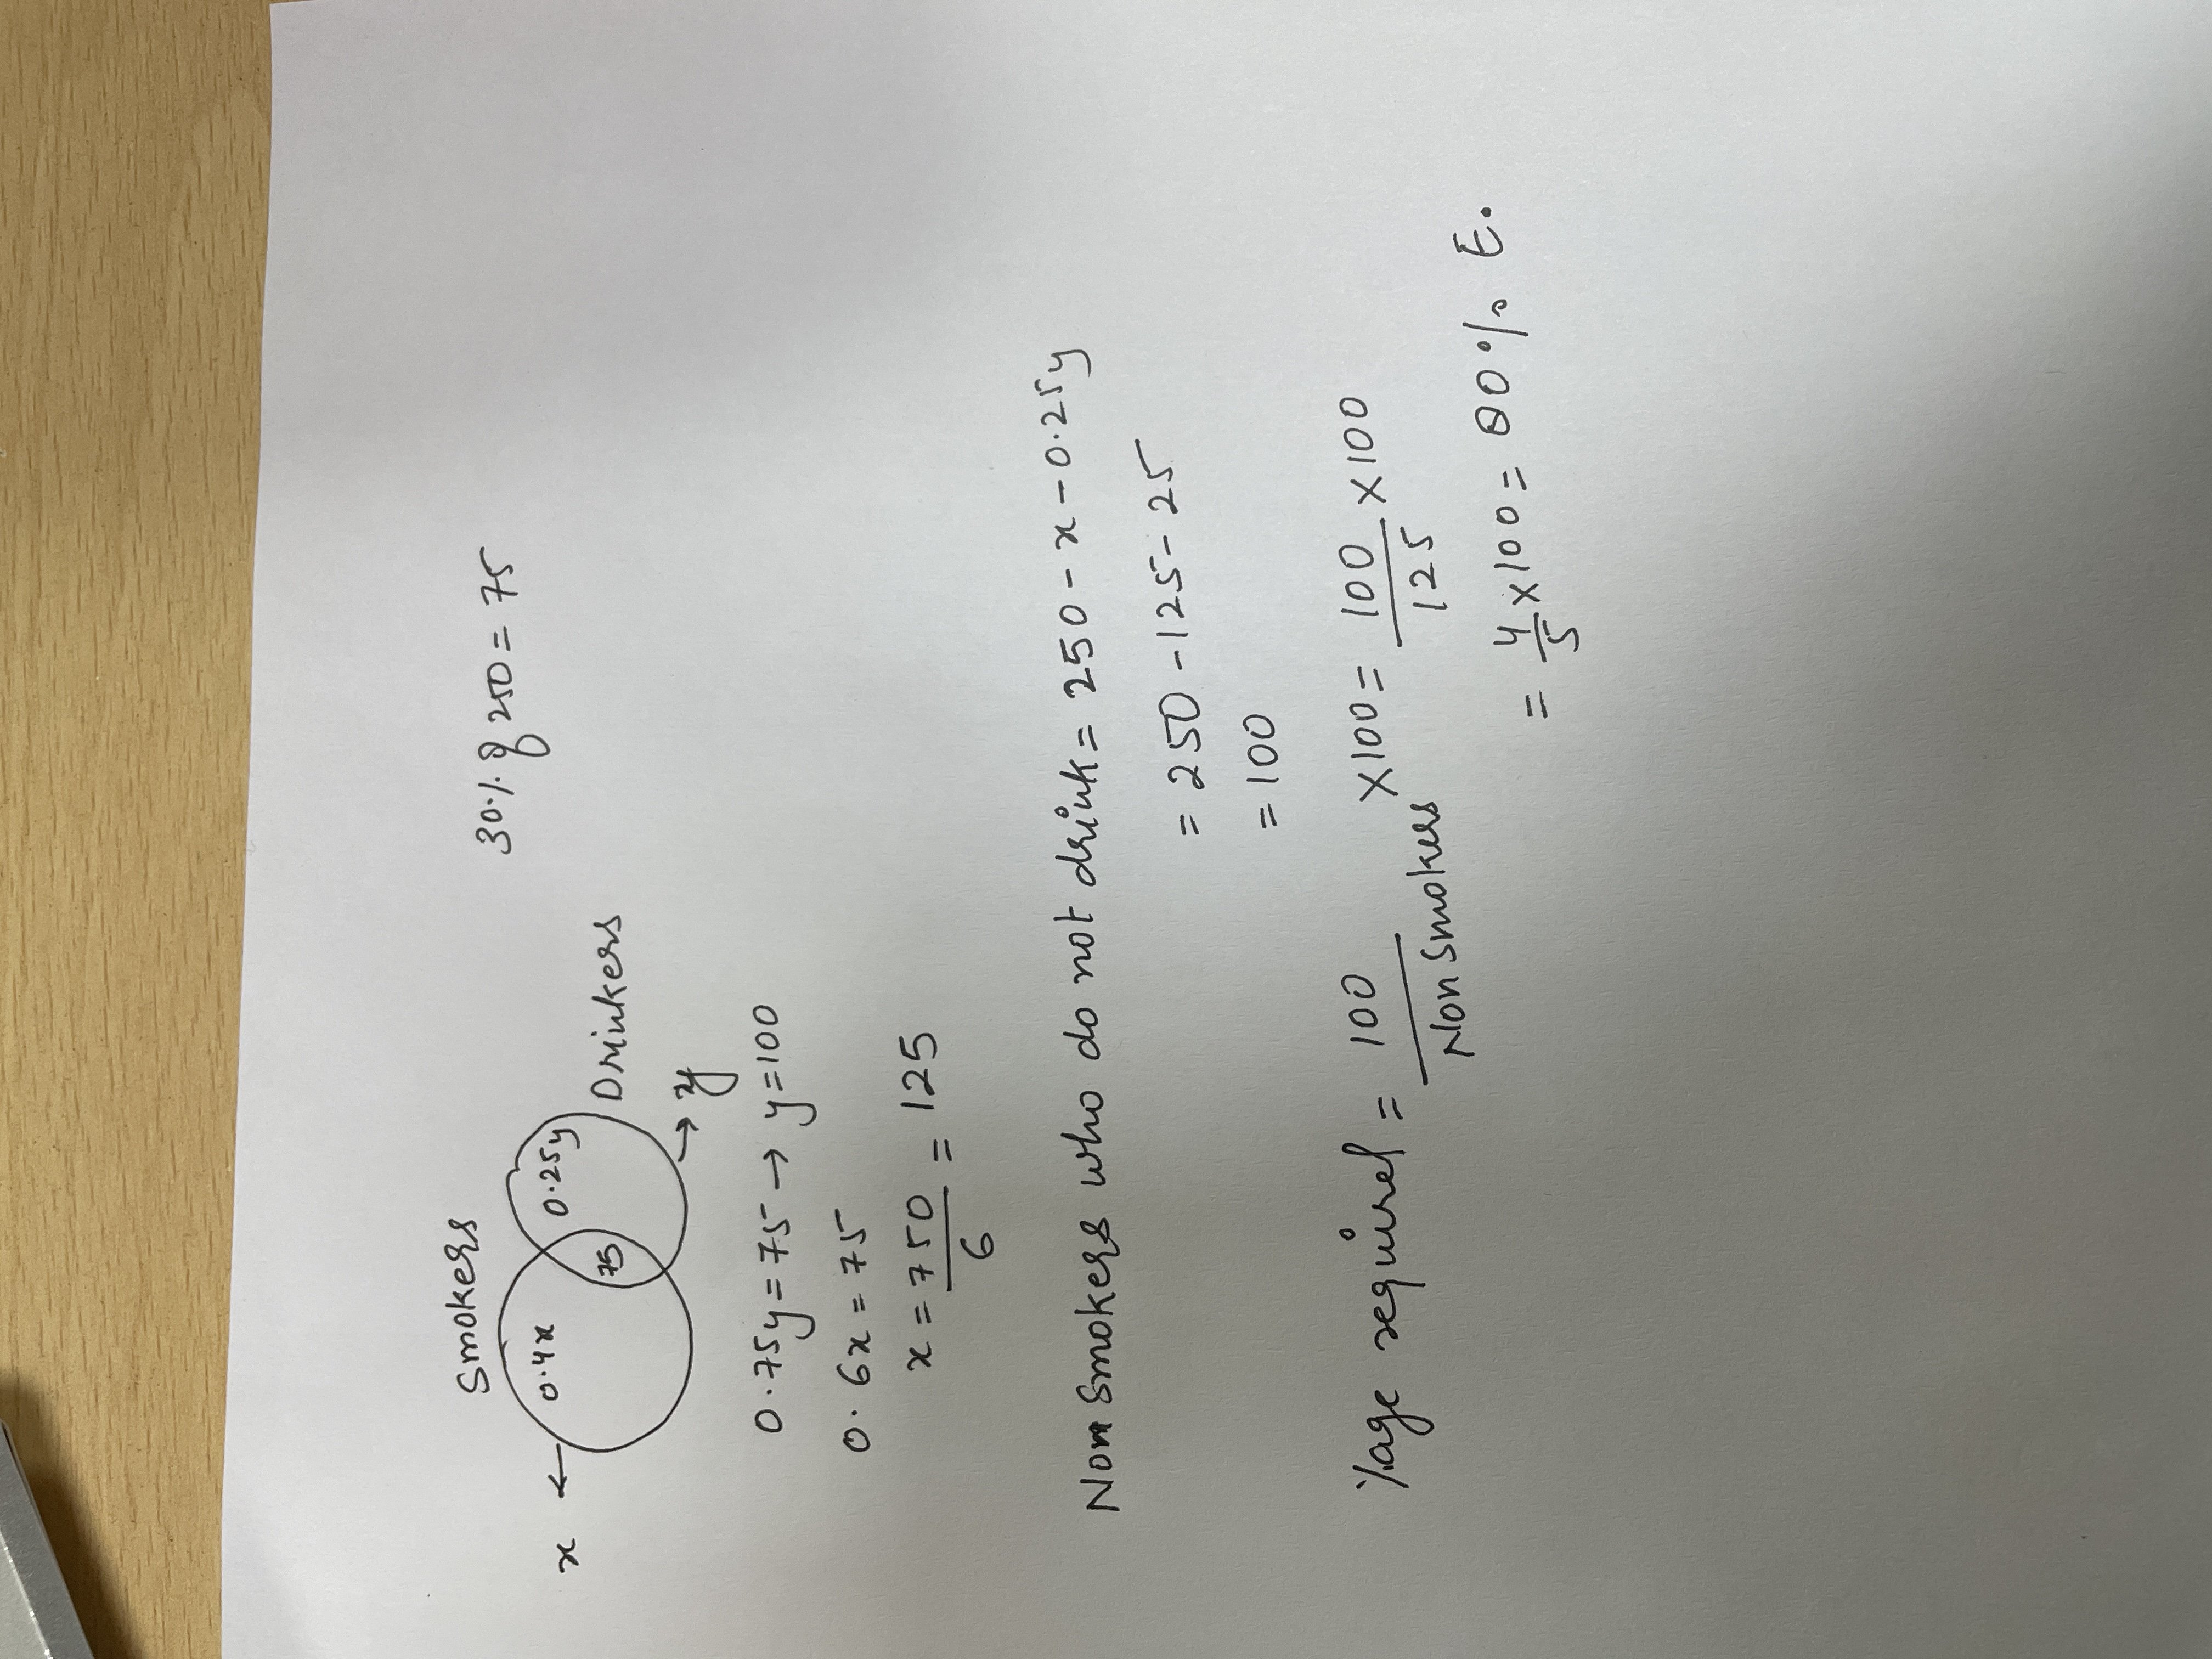 Smokers
30% of 250 = 75
x ← 0.4x 75 0.25y
Drinkers
→ y
0.75y = 75 → y = 100
0.6x = 75
x = 750/6 = 125
Non Smokers who do not drink = 250 - x - 0.25y
= 250 - 125 - 25
= 100
%age required = 100/Non Smokers × 100 = 100/125 × 100
= 4/5 × 100 = 80% E.